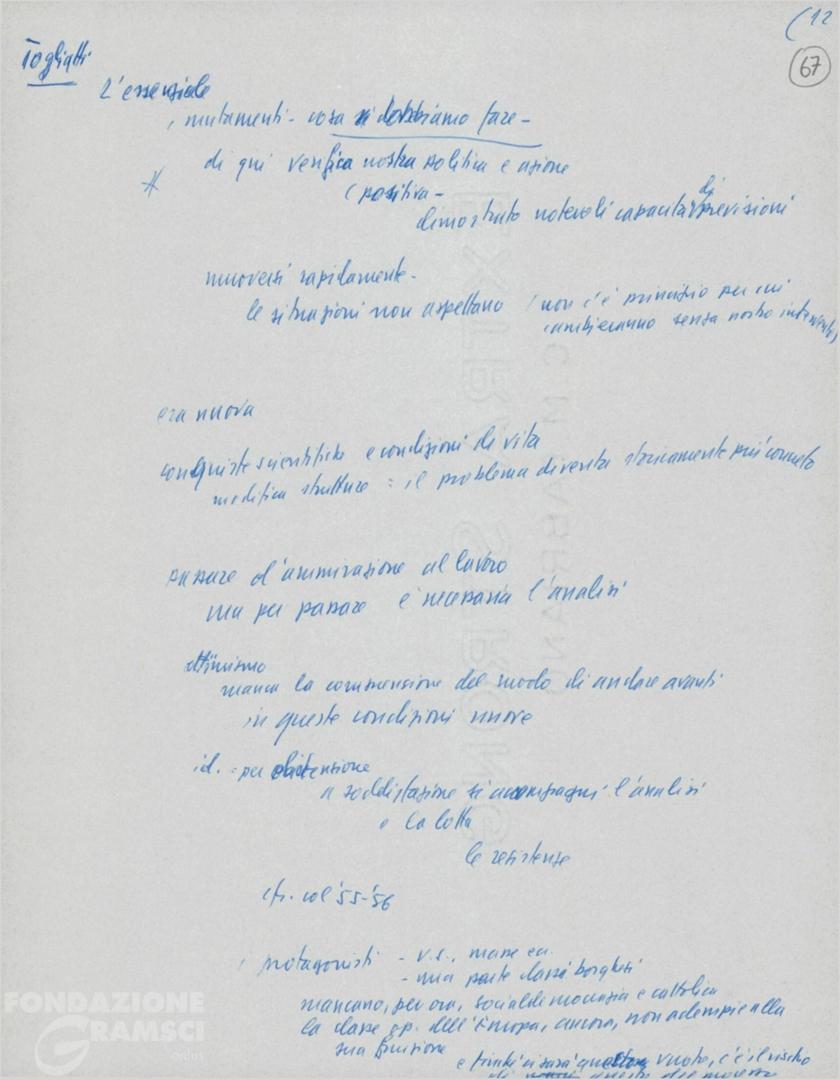 (12
67
Togliatti
L'essenziale
mutamenti - cosa dobbiamo fare -
di qui verifica nostra politica e azione
(positiva -
dimostrato notevoli capacità di previsioni
muoversi rapidamente -
le situazioni non aspettano (non c'è principio per cui
cambieranno senza nostro intervento)
era nuova
conquiste scientifiche e condizioni di vita
modifica strutture = il problema diventa storicamente più concreto
passare d'ammirazione al lavoro
ma per passare è necessaria l'analisi
ottimismo
manca la comprensione del modo di andare avanti
in queste condizioni nuove
id. = per
soddisfazione si accompagni l'analisi
e la lotta
le resistenze
cfr. col '55-'56
protagonisti - U.S., masse ecc.
- una parte classi borghesi
mancano, per ora, socialdemocrazia e cattolica
la classe op. dell'Europa, ancora, non adempie alla
sua funzione
e finché ci sarà questo vuoto, c'è il rischio
EXTRA STRONG
C.M. FABRIANO
FONDAZIONE
GRAMSCI
onlus